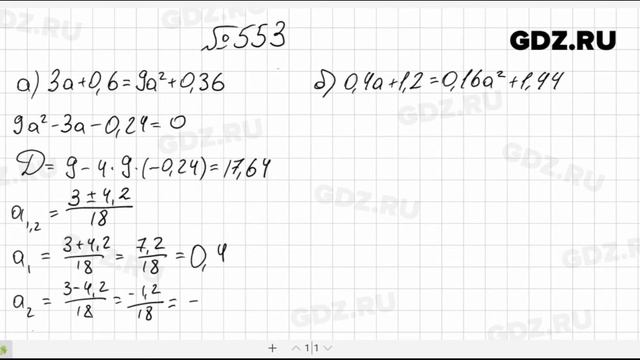 №553
GDZ.RU
а) 3a+0,6=9a²+0,36
б) 0,4a+1,2=0,16a²+1,44
9a²-3a-0,24=0
D=9-4·9·(-0,24)=17,64
a₁,₂ = (3±4,2)/18
a₁ = (3+4,2)/18 = 7,2/18 = 0,4
a₂ = (3-4,2)/18 = -1,2/18 = -
GDZ.RU
GDZ.RU
GDZ.RU
GDZ.RU
GDZ.RU
GDZ.RU
GDZ.RU
GDZ.RU
+ 1|1